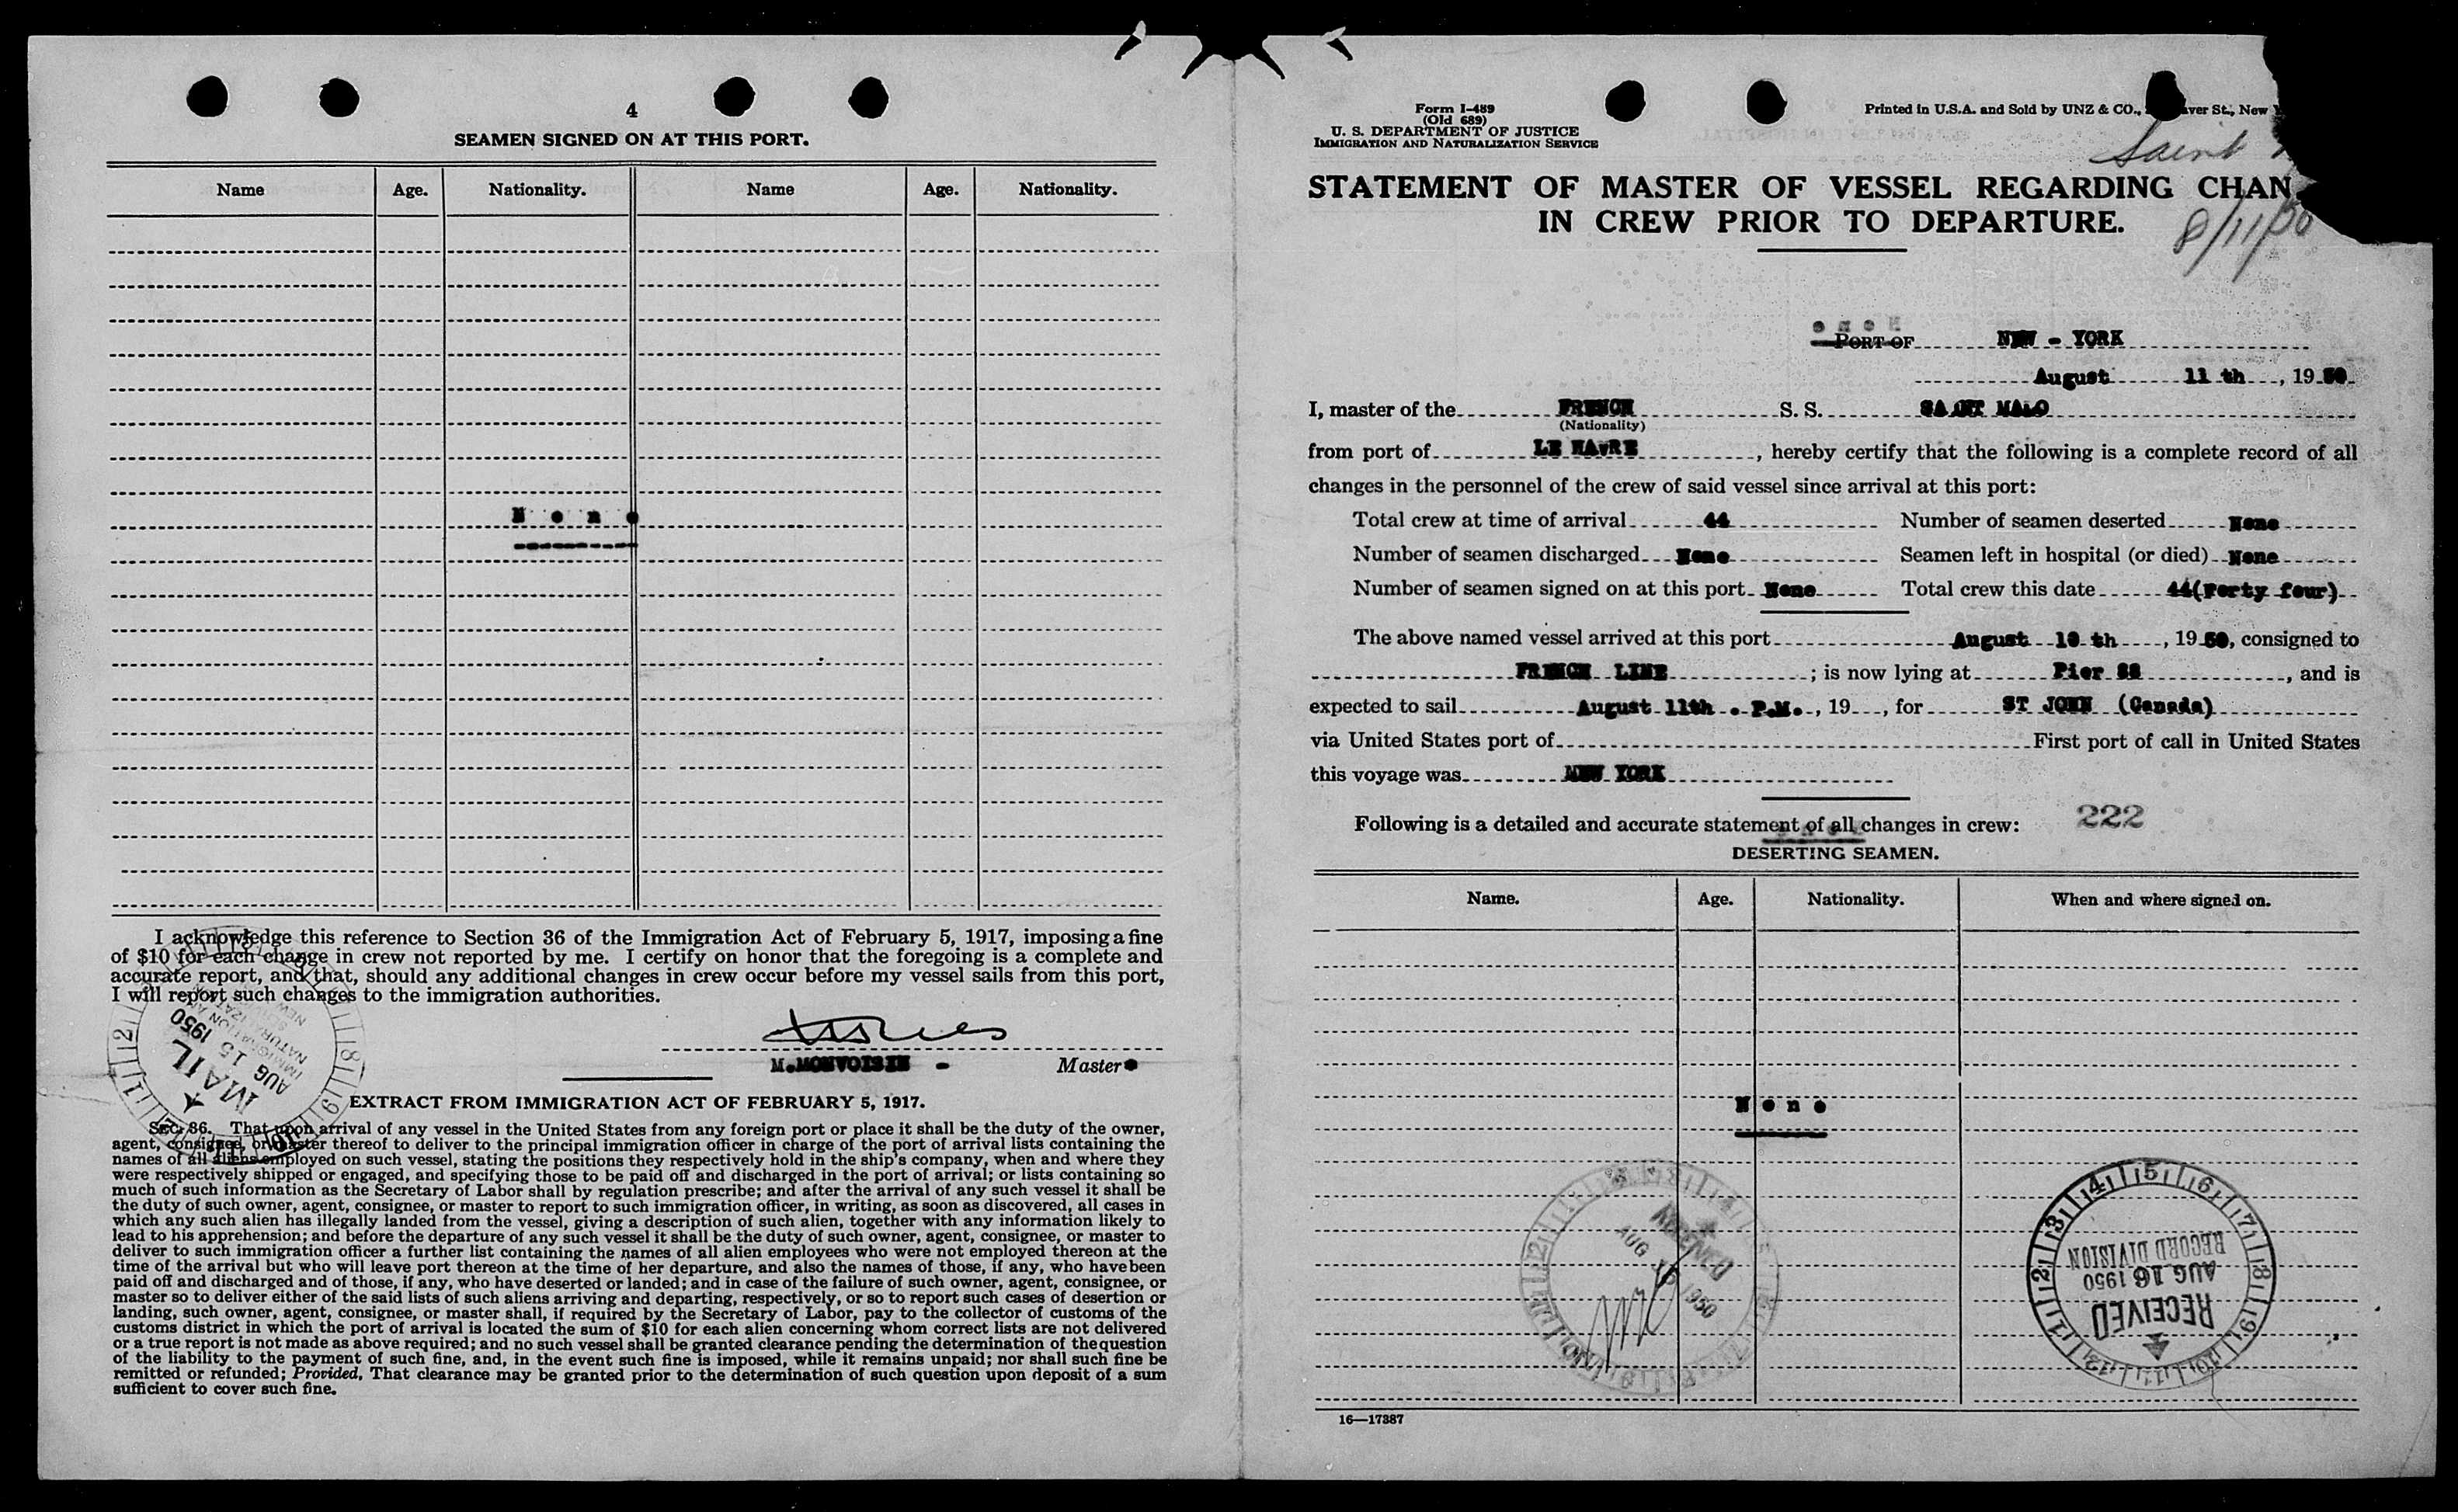 4
SEAMEN SIGNED ON AT THIS PORT.
Name Age. Nationality. Name Age. Nationality.
N o n e
I acknowledge this reference to Section 36 of the Immigration Act of February 5, 1917, imposing a fine
of $10 for each change in crew not reported by me. I certify on honor that the foregoing is a complete and
accurate report, and that, should any additional changes in crew occur before my vessel sails from this port,
I will report such changes to the immigration authorities.
M.MONVOISIN - Master
MAIL
AUG 15 1950
EXTRACT FROM IMMIGRATION ACT OF FEBRUARY 5, 1917.
SEC. 36. That upon arrival of any vessel in the United States from any foreign port or place it shall be the duty of the owner,
agent, consignee, or master thereof to deliver to the principal immigration officer in charge of the port of arrival lists containing the
names of all aliens employed on such vessel, stating the positions they respectively hold in the ship's company, when and where they
were respectively shipped or engaged, and specifying those to be paid off and discharged in the port of arrival; or lists containing so
much of such information as the Secretary of Labor shall by regulation prescribe; and after the arrival of any such vessel it shall be
the duty of such owner, agent, consignee, or master to report to such immigration officer, in writing, as soon as discovered, all cases in
which any such alien has illegally landed from the vessel, giving a description of such alien, together with any information likely to
lead to his apprehension; and before the departure of any such vessel it shall be the duty of such owner, agent, consignee, or master to
deliver to such immigration officer a further list containing the names of all alien employees who were not employed thereon at the
time of the arrival but who will leave port thereon at the time of her departure, and also the names of those, if any, who have been
paid off and discharged and of those, if any, who have deserted or landed; and in case of the failure of such owner, agent, consignee, or
master so to deliver either of the said lists of such aliens arriving and departing, respectively, or so to report such cases of desertion or
landing, such owner, agent, consignee, or master shall, if required by the Secretary of Labor, pay to the collector of customs of the
customs district in which the port of arrival is located the sum of $10 for each alien concerning whom correct lists are not delivered
or a true report is not made as above required; and no such vessel shall be granted clearance pending the determination of the question
of the liability to the payment of such fine, and, in the event such fine is imposed, while it remains unpaid; nor shall such fine be
remitted or refunded; Provided, That clearance may be granted prior to the determination of such question upon deposit of a sum
sufficient to cover such fine.
Form I-489
(Old 689)
U. S. DEPARTMENT OF JUSTICE
IMMIGRATION AND NATURALIZATION SERVICE
Printed in U.S.A. and Sold by UNZ & CO., aver St., New Y
Saint
STATEMENT OF MASTER OF VESSEL REGARDING CHAN
IN CREW PRIOR TO DEPARTURE.
8/11/50
PORT OF NEW - YORK
August 11 th , 19 50
I, master of the FRENCH S. S. SAINT MALO
(Nationality)
from port of LE HAVRE , hereby certify that the following is a complete record of all
changes in the personnel of the crew of said vessel since arrival at this port:
Total crew at time of arrival 44 Number of seamen deserted None
Number of seamen discharged None Seamen left in hospital (or died) None
Number of seamen signed on at this port None Total crew this date 44(Forty four)
The above named vessel arrived at this port August 10 th , 19 50, consigned to
FRENCH LINE ; is now lying at Pier 88 , and is
expected to sail August 11th . P.M. , 19 , for ST JOHN (Canada)
via United States port of First port of call in United States
this voyage was NEW YORK
Following is a detailed and accurate statement of all changes in crew: 222
DESERTING SEAMEN.
Name. Age. Nationality. When and where signed on.
N o n e
RECEIVED
AUG 1950
RECEIVED
AUG 16 1950
RECORD DIVISION
16—17387